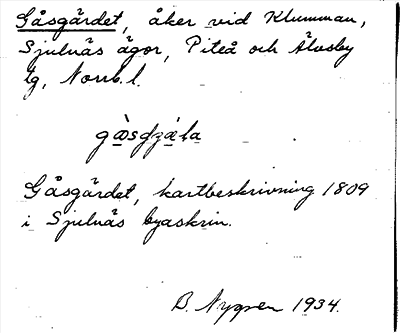 Gåsgärdet, åker vid Klumman,
Sjulnäs ägor, Piteå och Älvsby
tg, Norrb. l.
Gåsgärdet, kartbeskrivning 1809
i Sjulnäs byaskrin.
B. Nygren 1934.